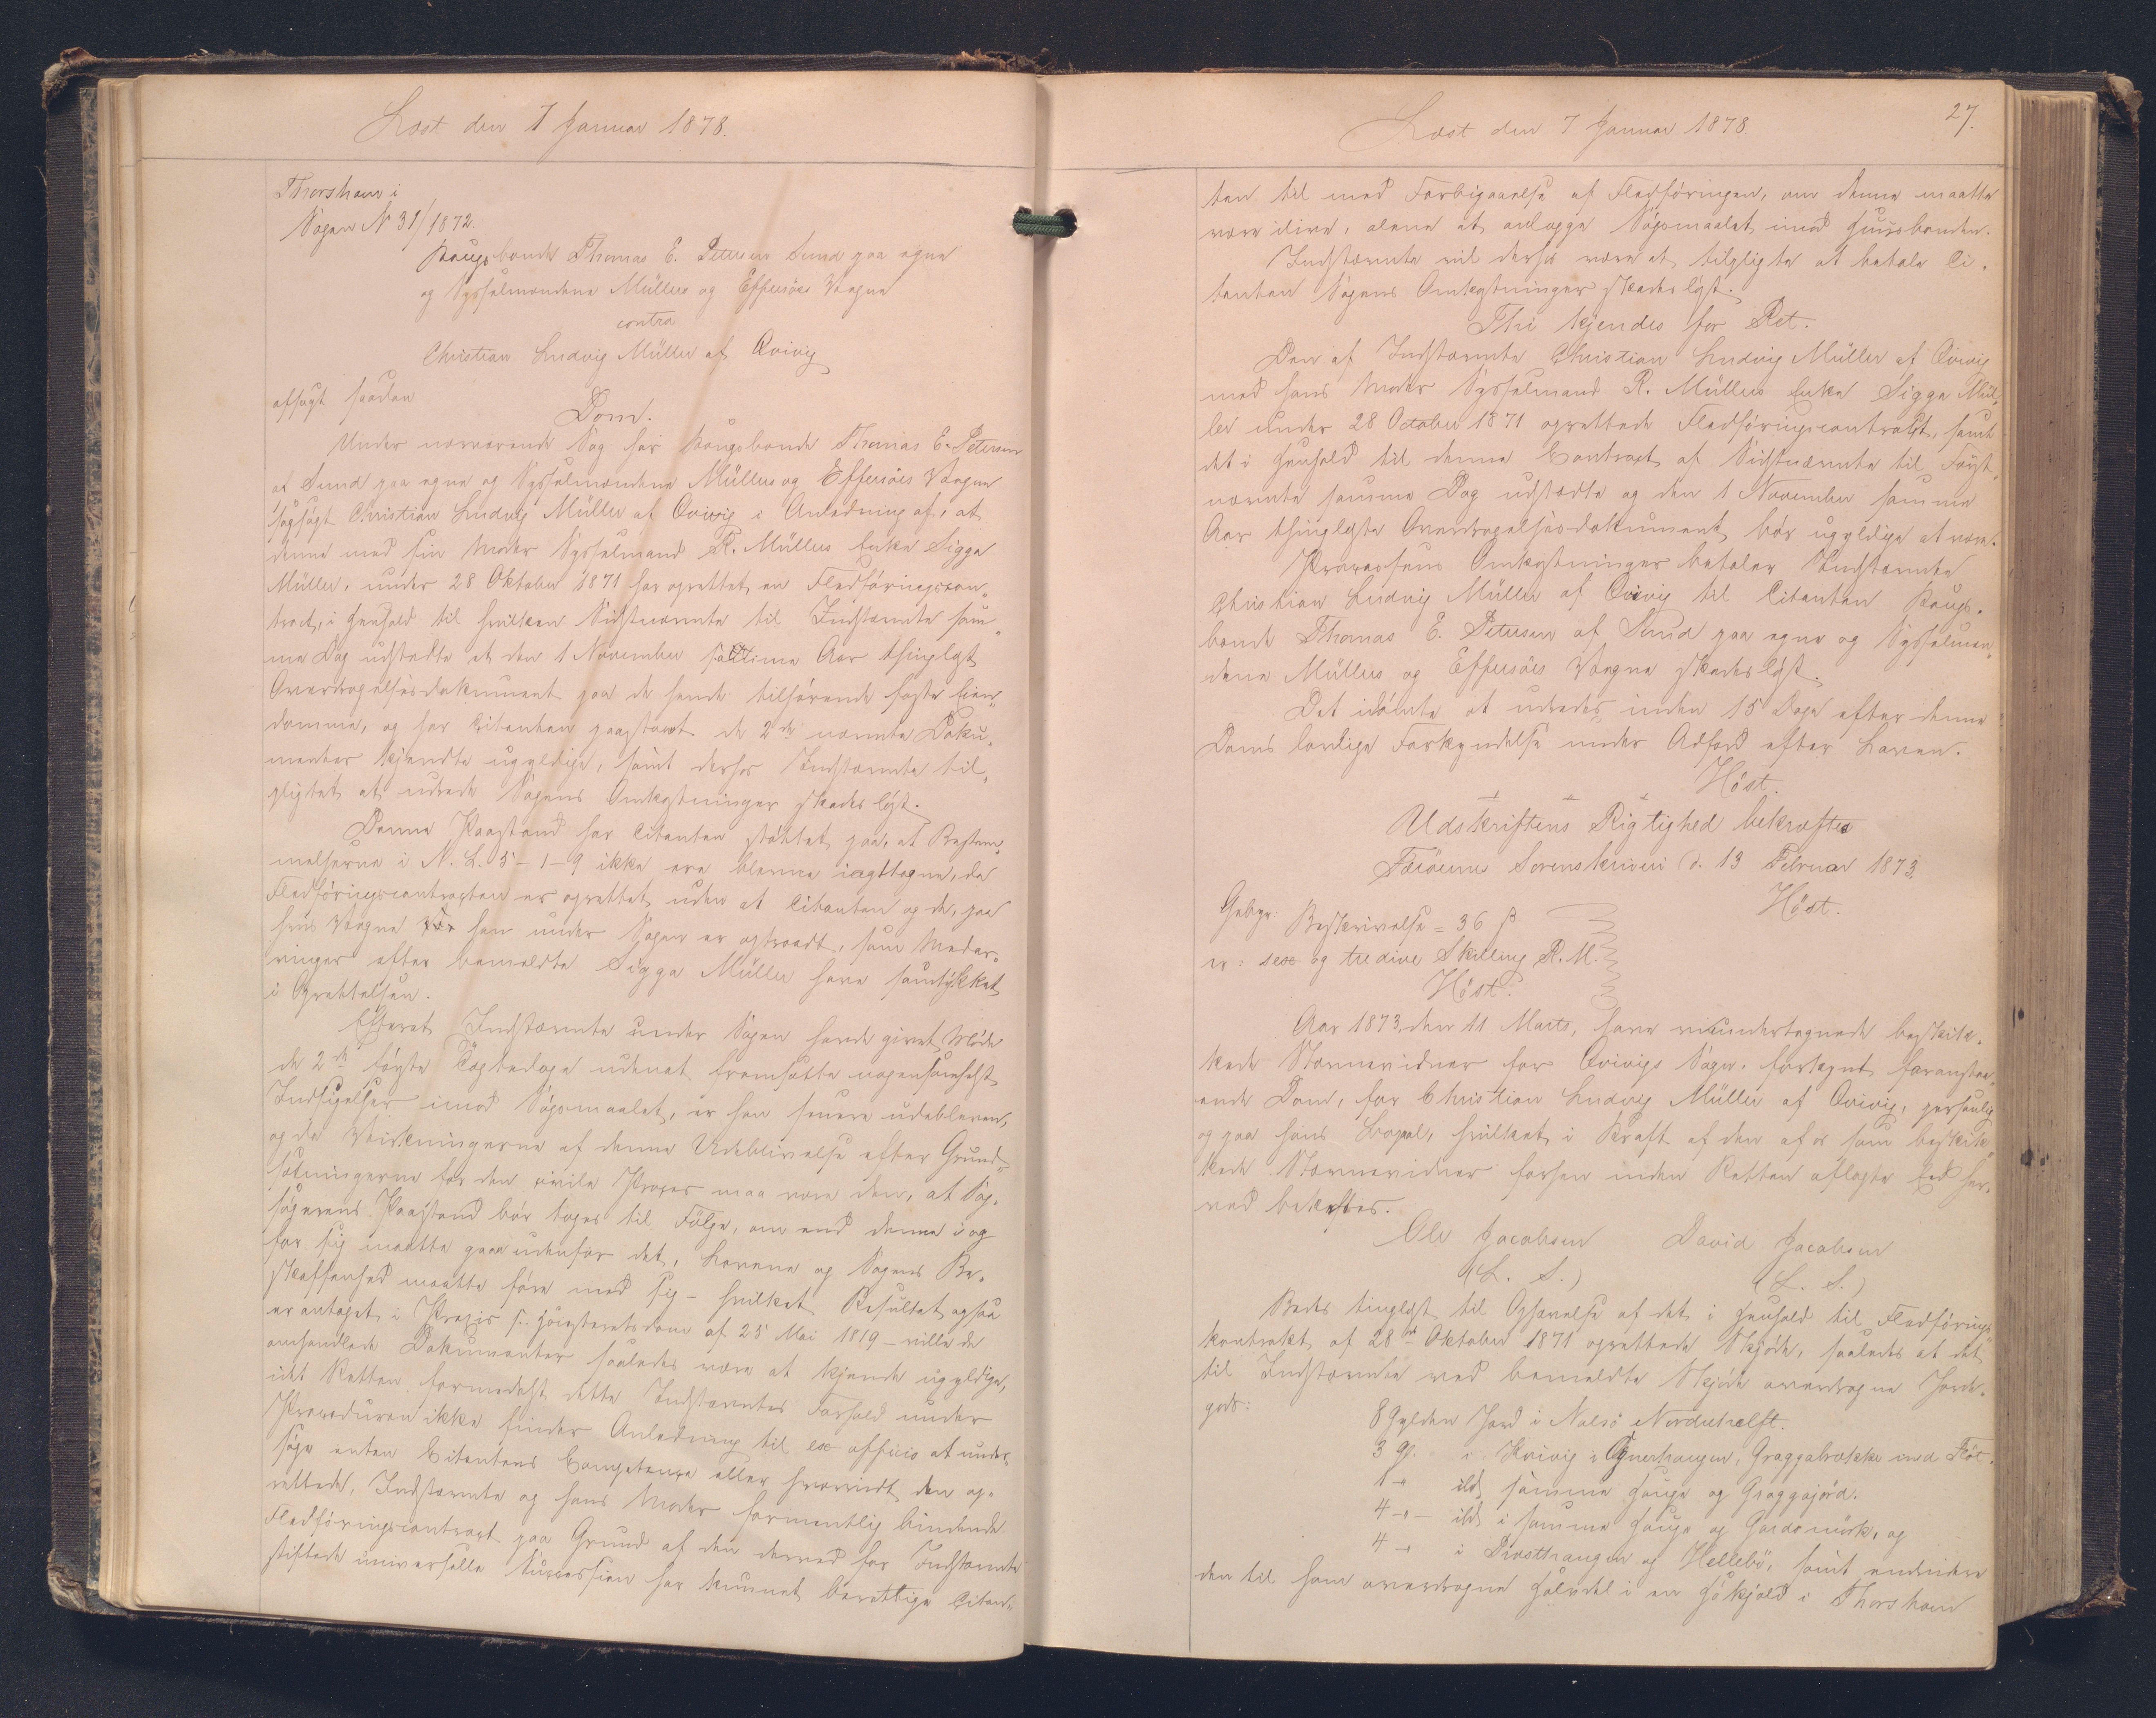 Læst den 7 Januar 1878.
Thorshavn i
Sagen N 31/1872.
Kongsbonde Thomas E. Petersen Sund paa egne
og Sysselmændene Müllers og Effersöes Vegne
contra
Christian Ludvig Müller af Qvivig
afsagt saadan
Dom.
Under nærværende Sag har Kongsbonde Thomas E. Petersen
af Sund paa egne og Sysselmændene Müllers og Effersöes Vegne
sagsögt Christian Ludvig Müller af Qvivig i Anledning af, at
denne med sin Moder Sysselmand R. Müllers Enke Sigga
Müller, under 28 Oktober 1871 har oprettet en Fledföringscon„
tract, i Henhold til hvilken Sidstnævnte til Indstævnte sam„
me Dag udstedte et den 1 November samme Aar thinglyst
Overdragelsesdokument paa de hende tilhörende faste Eien„
domme, og har Citanten paastaaet de 2de nævnte Doku„
menter kjendte ugyldige, samt derhos Indstævnte til„
pligtet at udrede Sagens Omkostninger skadeslöst.
Denne Paastand har Citanten stöttet paa, at Bestem„
melserne i N. L. 5-1-9 ikke ere blevne iagttagne, da
Fledföringscontracten er oprettet uden at Citanten og de, paa
hvis Vegne han under Sagen er optraadt, som Medar„
vinger efter bemeldte Sigga Müller have samtykket
i Oprettelsen.
Efterat Indstævnte under Sagen havde givet Möde
de 2de förste Tægtedage uden at fremsætte nogensomhelst
Indsigelser imod Sögsmaalet, er han senere udebleven,
og da Virkningerne af denne Udeblivelse efter Grund„
sætningerne for den civile Proces maa være den, at Sag„
sögerens Paastand bör tages til Fölge, om end denne i og
for sig maatte gaae udenfor det, Lovene og Sagens Be„
skaffenhed maatte före med sig – hvilket Resultat ogsaa
er antaget i Praxis f. Höiesteretsdom af 25 Mai 1819 – ville de
omhandlede Dokumenter saaledes være at kjende ugyldige,
idet Retten formedelst dette Indstævntes Forhold under
Proceduren ikke finder Anledning til ex officio at under„
söge enten Citantens Competence eller hvorvidt den op„
rettede, Indstævnte og hans Moder formentlig bindende
Fledföringscontract paa Grund af den derved for Indstævnte
stiftede universelle Succession har kunnet berettige Citan„
Læst den 7 Januar 1878.
27.
ten til med Forbigaaelse af Fledföringen, om denne maatte
være ilive, alene at anlægge Sögsmaalet imod Huusbonden.
Indstævnte vil derhos være at tilpligte at betale Ci„
tanten Sagens Omkostninger skadeslöst.
Thi kjendes for Ret.
Den af Indstævnte Christian Ludvig Müller af Qvivig
med hans Moder Sysselmand R. Müllers Enke Sigga Mül„
ler under 28 October 1871 oprettede Fledföringscontract, samt
det i Henhold til denne Contract af Sidstnævnte til Först„
nævnte samme Dag udstedte og den 1 November samme
Aar thinglyste Overdragelsesdokument bör ugyldige at være.
Processens Omkostninger betaler Indstævnte
Christian Ludvig Müller af Qvivig til Citanten Kongs„
bonde Thomas E. Petersen af Sund paa egne og Sysselmæn„
dene Müllers og Effersöes Vegne skadeslöst.
Det idömte at udredes inden 15 Dage efter denne
Doms lovlige Forkyndelse under Adfærd efter Loven.
Höst.
Udskriftens Rigtighed bekræftes
Færöernes Sorenskriveri d. 13 Februar 1873.
Höst.
Gebyr: Beskrivelse = 36 ß
er: sex og tredive Skilling R. M.
Höst.
Aar 1873, den 11 Marts, have vi undertegnede beskik„
kede Stævnevidner for Qvivigs Sogn, forkyndt foranstaa„
ende Dom, for Christian Ludvig Müller af Qvivig, personlig
og paa hans Bopæl, hvilket i Kraft af den af os som beskik„
kede Stævnevidner forhen inden Retten aflagte Eed her„
ved bekræftes.
Ole Jacobsen David Jacobsen
(L. S.) (L. S.)
Bedes tinglyst til Ophævelse af det i Henhold til Fledförings„
kontrakt af 28de Oktober 1871 oprettede Skjöde, saaledes at det
til Indstævnte ved bemeldte Skjöde overdragne Jorde„
gods:
8 Gylden Jord i Nolsö Nordrehælft.
3 Gl. i Kvivig i Ognerhaugen, Graggabrekke med Flöt.
1 -"- ibd samme Hauge og Graggajörd.
4 -"- ibd i samme Hauge og Gardsmörk, og
4 -"- i Qvosthaugen og Hellebö, samt endvidere
den til ham overdragne Halvdel i en Sökjæld i Thorshavn